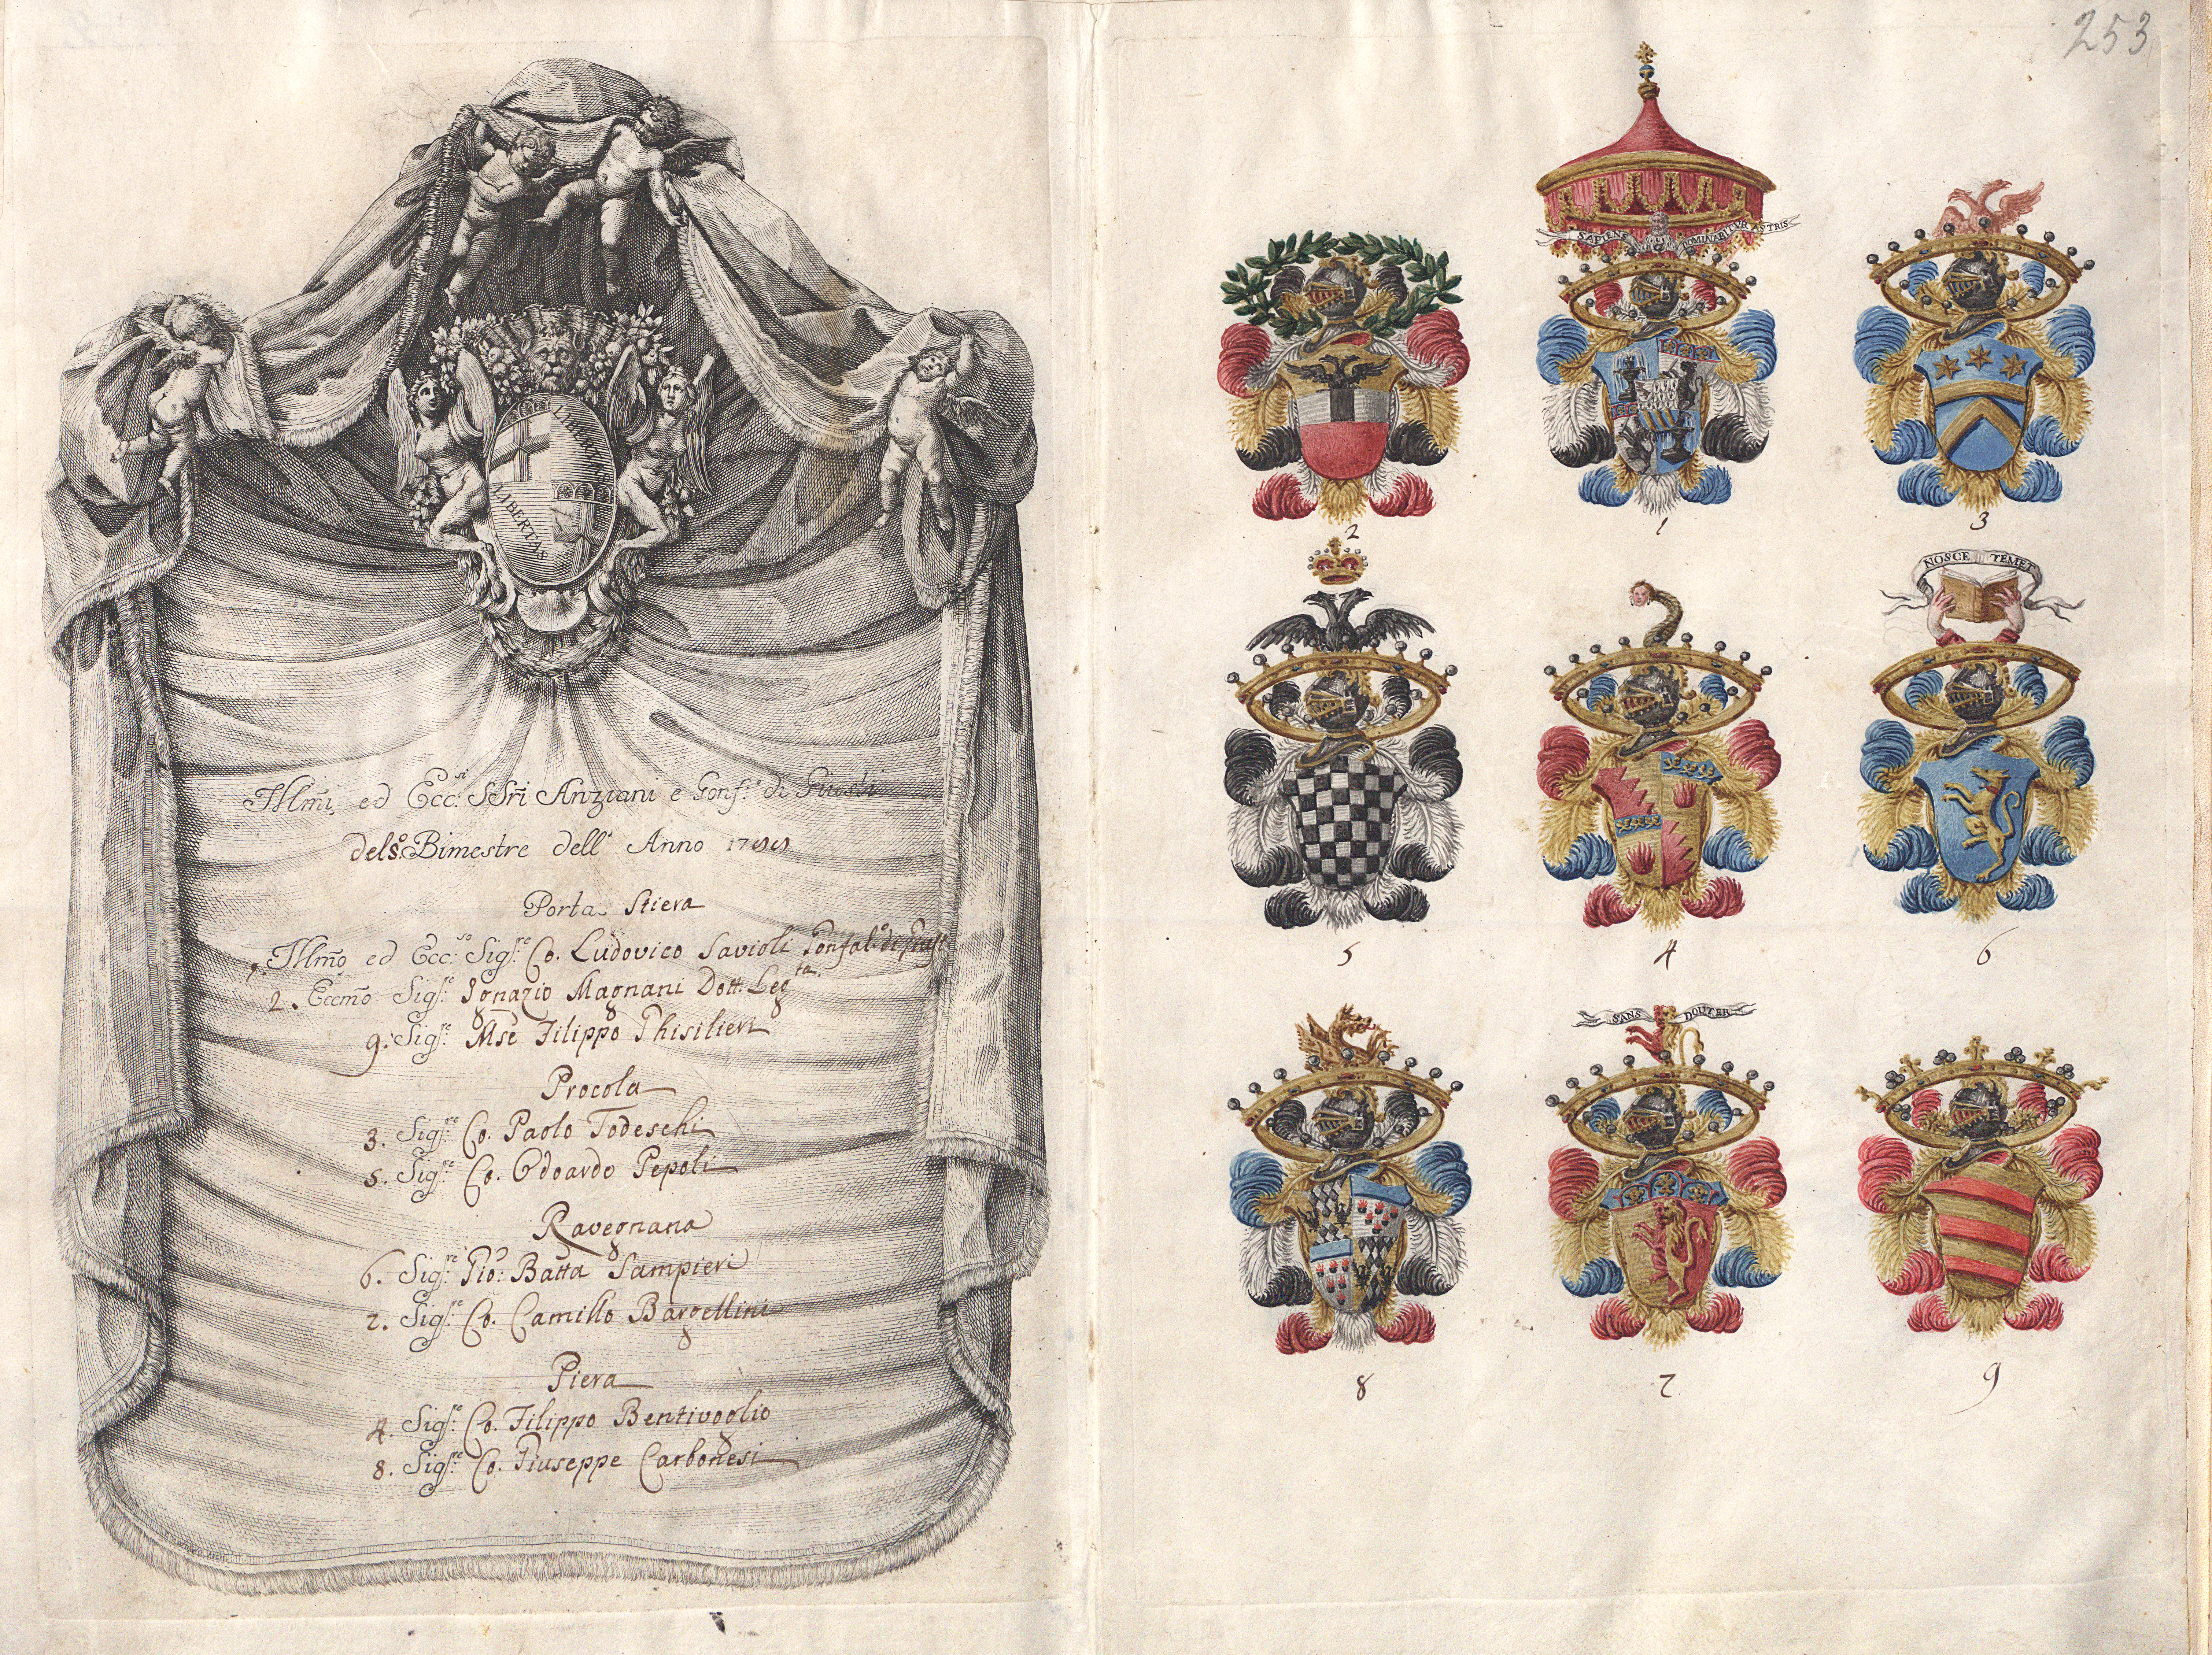 LIBERTAS
LIBERTAS
Illmi ed Ecc.si SSri Anziani e Gonf.i di Giusti
del 5.o Bimestre dell' Anno
Porta Stiera
1. Illmo ed Ecc.so Sig.re Co. Ludovico Savioli Gonfal.e di Giust.
2. Eccmo Sig.re Ignazio Magnani Dott. Leg.ta
9. Sig.re Mse Filippo Ghisilieri
Procola
3. Sig.re Co. Paolo Todeschi
5. Sig.re Co. Odoardo Pepoli
Ravegnana
6. Sig.re Gio: Batta Sampieri
7. Sig.re Co. Camillo Bargellini
Piera
4. Sig.re Co. Filippo Bentivoglio
8. Sig.re Co. Giuseppe Carbonesi
253
SAPIENS DOMINABITUR ASTRIS
2
1
3
NOSCE TEMET
5
4
6
SANS DOUTER
8
7
9